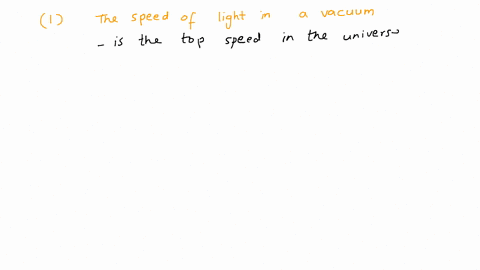 (1) The speed of light in a vacuum
- is the top speed in the univers